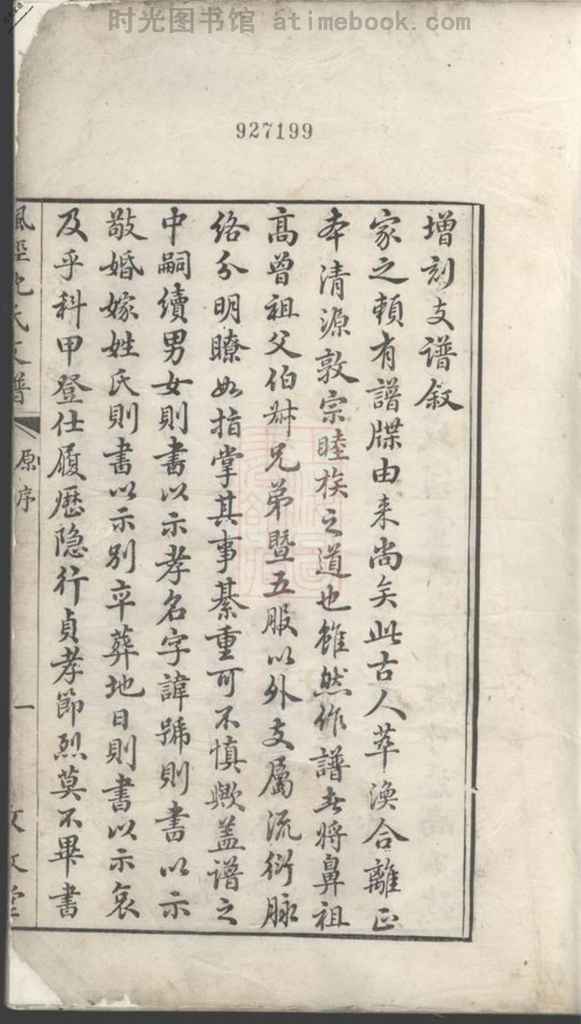 时光图书馆 atimebook.com
927199
增刻支谱叙
家之賴有譜牒由来尚矣此古人萃渙合離正
本清源敦宗睦族之道也雖然作譜者將鼻祖
高曾祖父伯叔兄弟暨五服以外支属流衍脉
络分明瞭如指掌其事綦重可不慎歟盖譜之
中嗣續男女則書以示孝名字諱號則書以示
敬婚嫁姓氏則書以示别卒葬地日則書以示哀
及乎科甲登仕履歷隐行貞孝節烈莫不畢書
氏支譜
原序
一